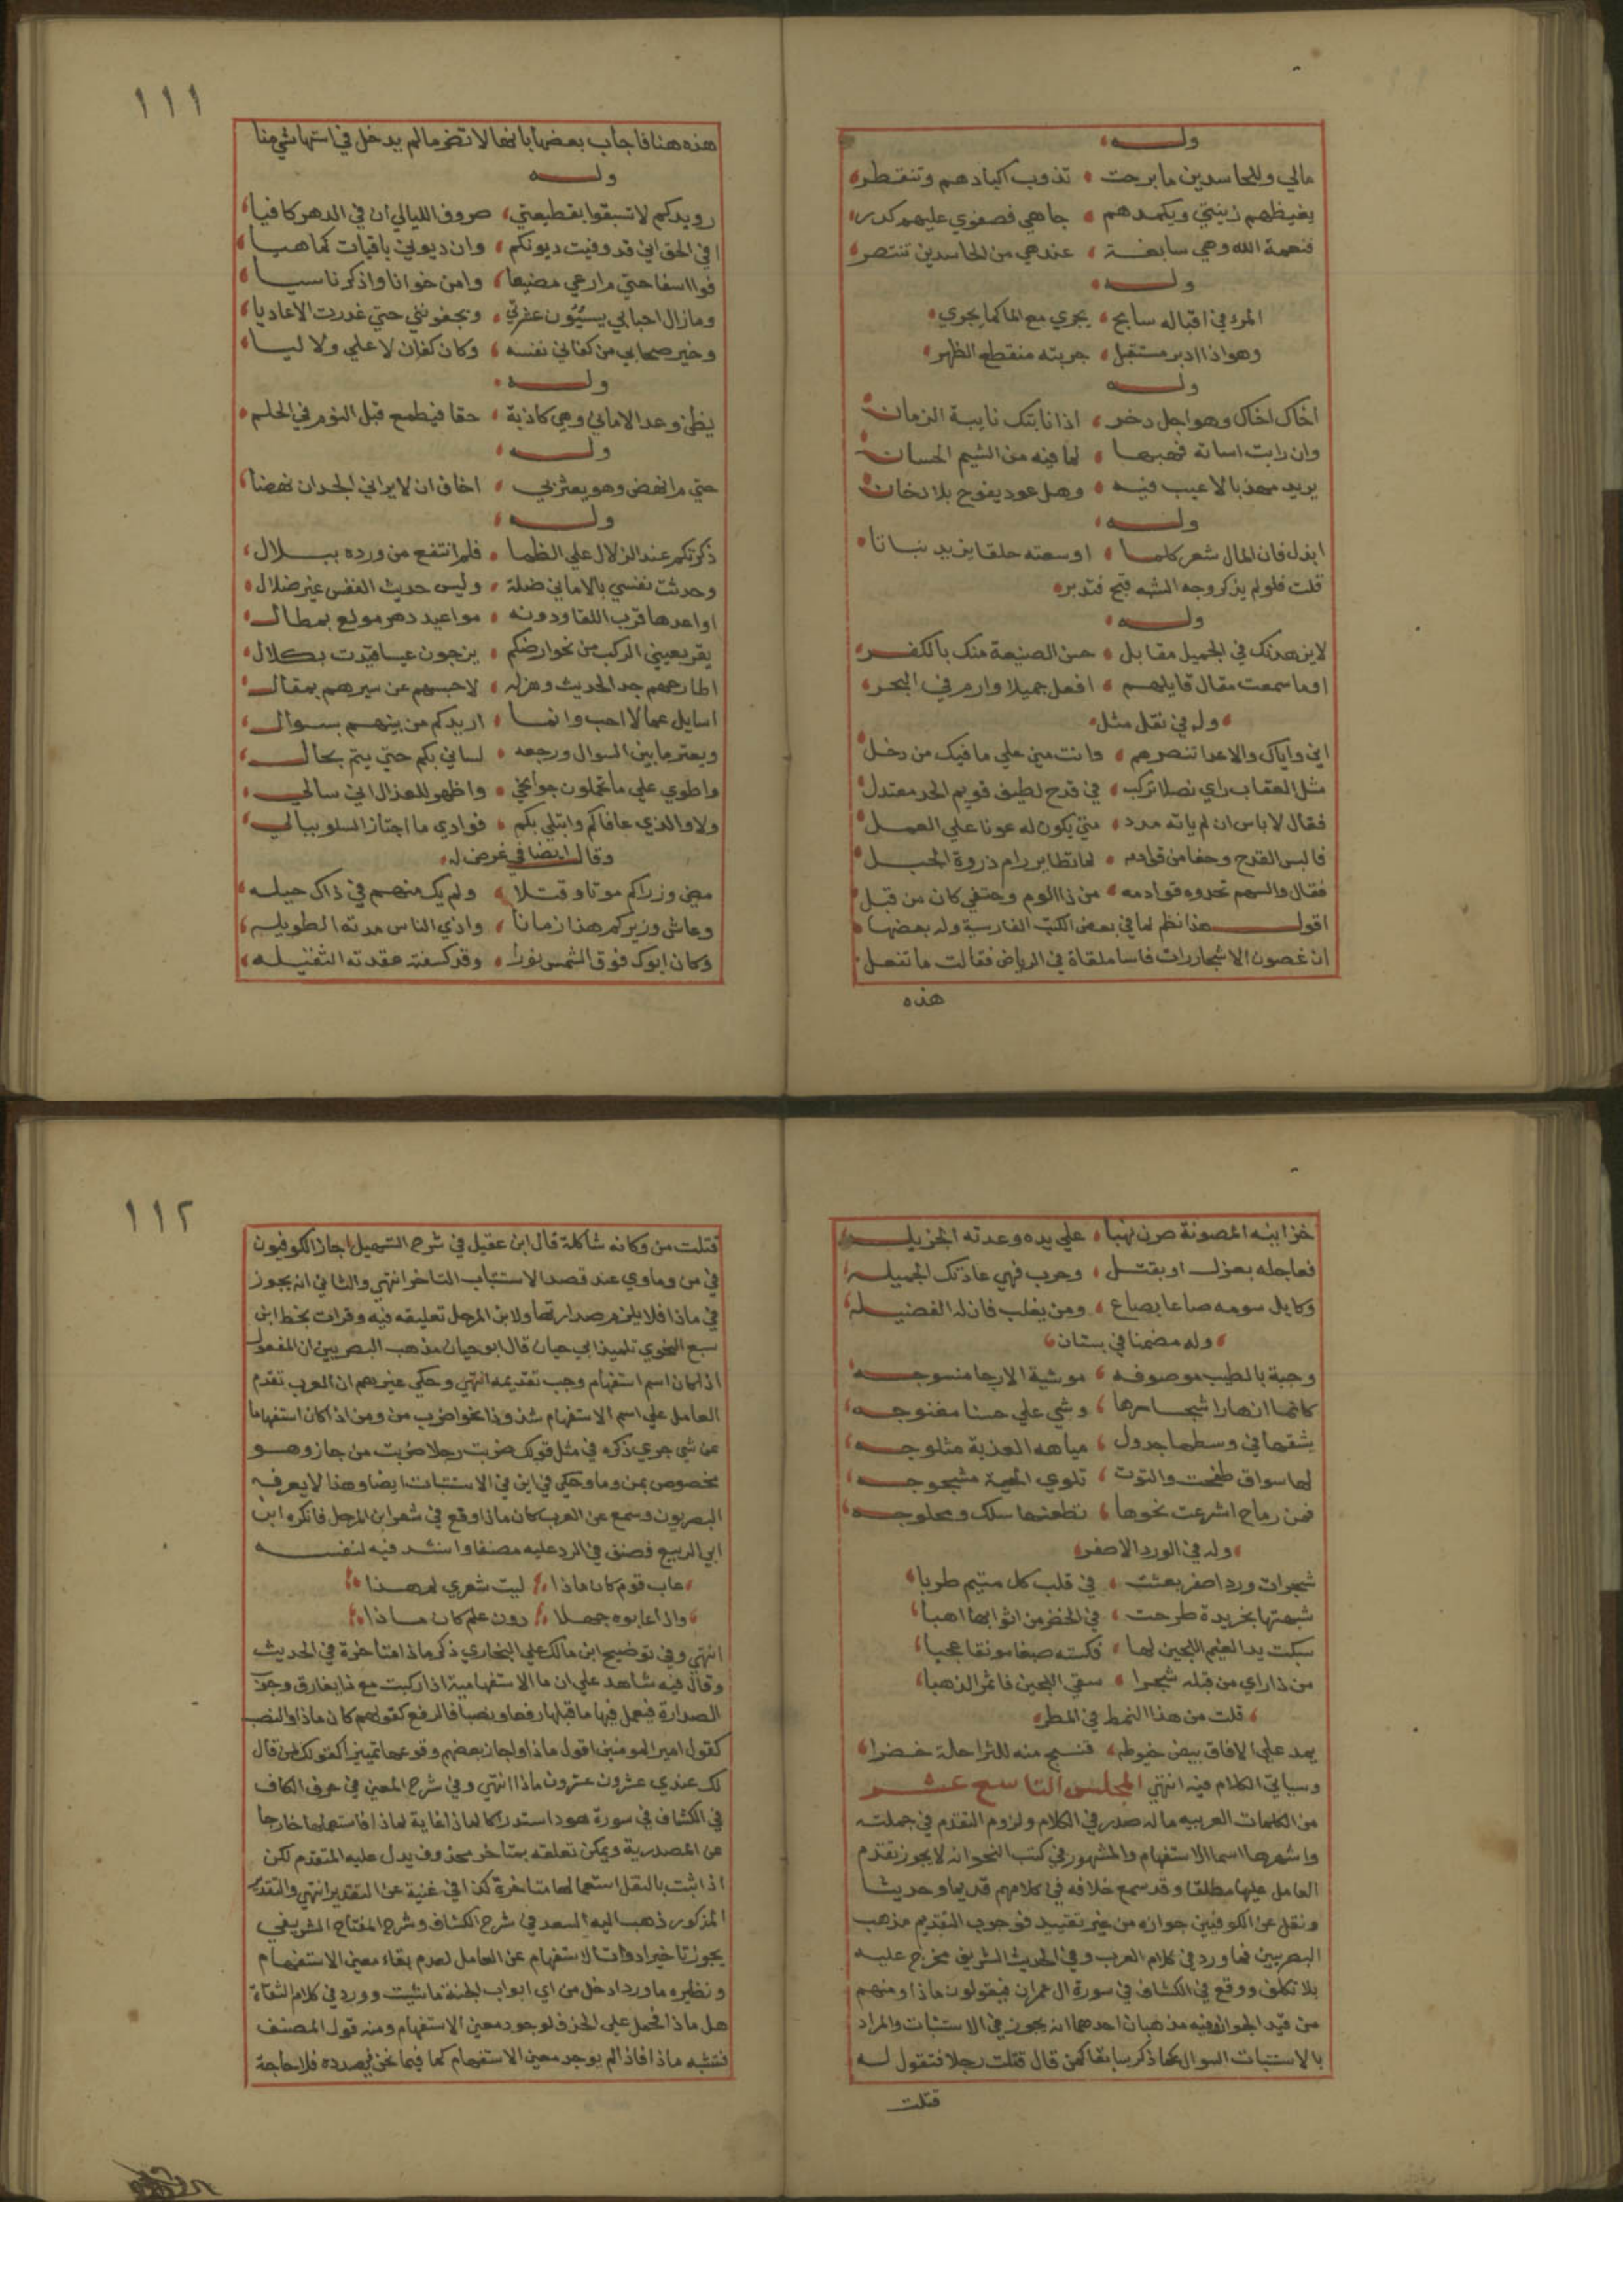 ولـــه
مالي وللحاسدين ما برحت ، تذوب اكبادهم وتنفطر
يغيظهم زينتي ويكمدهم ، جاهي فصفوي عليهم كدر
فنعمة الله وهي سابغة ، عندهي من الحاسدين تنتصر
ولـــه
المرء في اقباله سابح ، يجري مع الما كما يجري
وهو اذا ادبر مستقبل ، جريته منقطع الظهر
ولـــه
اخاك اخاك وهو اجل دخر ، اذا نابتك نايبة الزمان
وان رابت اساته فهبها ، لما فيه من الشيم الحسان
يريد مهذبا لا عيب فيه ، وهل عود يفوح بلا دخان
ولـــه
ابذل فان المال شعر كلما ، اوسعته حلقا يزيد نباتا
قلت فلو لم يذكر وجه الشبه قبح فتدبر
ولـــه
لا يزهدنك في الجميل مقابل ، حسن الصنيعة منك بالكفر
اوما سمعت مقال قايلهم ، افعل جميلا وارم في البحر
وله في نقل مثل
اني واياك والاعدا تنصرهم ، وانت مني علي ما فيك من دخل
مثل العقاب راي نصلا تركب ، في قدح لطيف قويم الحد معتدل
فقال لا باس ان لم ياته مدد ، مني يكون له عونا علي العمل
فالبس القدح وحفا من قوادمه ، لما تطاير رام ذروة الجبل
فقال والسهم تحدوه قوادمه ، من ذا الوم وحتفي كان من قبل
اقول هذا نظم لما في بعض الكتب الفارسية وله بعضها
ان غصون الاشجار رات فاسا ملقاة في الرياض فقالت ما تفعل
هذه
١١١
هذه هنا فاجاب بعضها بانها لا تضر ما لم يدخل في استها شي منا
ولـــه
رويدكم لا تسبقوا بقطيعتي ، صروف الليالي ان في الدهر كافيا
افي الحق اني قد وفيت ديونكم ، وان ديوني باقيات كما هيا
فوا اسفا حتي م ارعي مضيعا ، وامن خوانا واذكر ناسيا
وما زال احبابي يسيؤن عشرتي ، ويجفونني حتي غدرت الاعاديا
وخير صحابي من كفاني نفسه ، وكان كفافا لا علي ولا ليا
ولـــه
يظن وعد الاماني وهي كاذبة ، حقا فيطمع قبل النوم في الحلم
ولـــه
حتي م انهض وهو يعثر بي ، اخاف ان لا يراني الجد ان نهضا
ولـــه
ذكرتكم عند الزلال علي الظما ، فلم انتفع من ورده ببلال
وحدثت نفسي بالاماني ضلة ، وليس حديث النفس غير ضلال
اواعدها قرب اللقا ودونه ، مواعيد دهر مولع بمطال
يقر بعيني الركب من نحو ارضكم ، يزجون عيسا قيدت بكلال
اطارحهم جد الحديث وهزله ، لاحبسهم عن سيرهم بمقال
اسايل عما لا احب وانما ، اريدكم من بينهم بسوال
ويعتر ما بين السوال ورجعه ، لساني بكم حتي يتم بحال
واطوي علي ما تعلمون جوانحي ، واظهر للعذال اني سالي
ولا والذي عافاكم وابتلي بكم ، فوادي ما اجتاز السلو ببالي
وقال ايضا في غرض له
مضي وزراكم موتا وقتلا ، ولم يك منهم في ذاك حيله
وعاش وزيركم هذا زمانا ، واذي الناس مدته الطويله
وكان ابوك فوق الشمس نورا ، وقد كسفته عقدته الثقيله
خزاينه المصونة صرن نهبا ، علي يده وعدته الجزيله
فعاجله بعزل او بقتل ، وحرب فهي عادتك الجميله
وكايل سومه صاعا بصاع ، ومن يغلب فان له الفضيله
وله مضمنا في بستان
وجبة بالطيب موصوفه ، موشية الارجا منسوجه
كانما انهارا شجارها ، وشي علي حسنا مغنوجه
يشقها في وسطها جدول ، مياهه العذبة مثلوجه
لها سواق طفحت والتوت ، تلوي الحية مشجوجه
فمن رماح اشرعت نحوها ، تطعنها سلك ومحلوجه
وله في الورد الاصفر
شجرات ورد اصفر بعثت ، في قلب كل متيم طربا
شبهتها بخريدة طرحت ، في الخضر من اثوابها اهبا
سبكت يد الغيم اللجين لها ، فكسته صبغا مونقا عجبا
من ذا راي من قبله شجرا ، سقي اللجين فاثمر الذهبا
قلت من هذا النمط في المطر
يمد علي الافاق بيض خيوطه ، فنسج منه للثرا حلة خضرا
وسياتي الكلام فيه انتهي المجلس التاسع عشر
من الكلمات العربيه ماله صدر في الكلام ولزوم التقدم في جملته
واشهرها اسما الاستفهام والمشهور في كتب النحو انه لا يجوز تقدم
العامل عليها مطلقا وقد سمع خلافه في كلامهم قديما وحديثا
ونقل عن الكوفيين جوازه من غير تقييد فوجوب التقديم مذهب
البصريين فما ورد في كلام العرب وفي الحديث الشريف مخرج عليه
بلا تكلف ووقع في الكشاف في سورة ال عمران فيقولون ماذا ومنهم
من قيد الجواز وفيه مذهبان احدهما انه يجوز في الاستثبات والمراد
بالاستثبات السوال عما ذكر سابقا كمن قال قتلت رجلا فتقول له
قتلت
١١٢
قتلت من وكانه شاكلة قال ابن عقيل في شرح التسهيل اجاز الكوفيون
في من وما وي عند قصد الاستثبات التاخر انتهي والثاني انه يجوز
في ماذا فلا يلزم صدارتها ولابن المرحل تعليقه فيه وقرات بخط ابن
سبع النحوي تلميذ ابي حيان قال ابو حيان مذهب البصريين ان المفعول
اذا كان اسم استفهام وجب تقديمه انتهي وحكي غيرهم ان العرب تقدم
العامل علي اسم الاستفهام شذوذا نحو اضرب من ومن اذا كان استفهاما
عن شي جري ذكره في مثل قولك ضربت رجلا ضربت من جاز وهو
مخصوص بمن وما وحكي في اين في الاستثبات ايضا وهذا لا يعرفه
البصريون وسمع عن العرب كان ماذا وقع في شعر ابن المرحل فانكره ابن
ابي الربيع فصنف في الرد عليه مصنفا وانشد فيه لنفسه
عاب قوم كان ماذا ، ليت شعري لم هذا
واذا عابوه جهلا ، دون علم كان ماذا
انتهي وفي توضيح ابن مالك علي البخاري ذكر ماذا متاخرة في الحديث
وقال فيه شاهد علي ان ما الاستفهامية اذا ركبت مع ذا يفارق وجوب
الصدارة فيعمل فيها ما قبلها رفعا ونصبا فالرفع كقولهم كان ماذا والنصب
كقول امير المومنين اقول ماذا واجاز بعضهم وقوعها تمييزا كقولك لمن قال
لك عندي عشرون عشرون ماذا انتهي وفي شرح المغني في حرف الكاف
في الكشاف في سورة هود استدراكا لماذا غاية لماذا فاستعملها خارجا
عن المصدرية ويمكن تعلقه بمتاخر محذوف يدل عليه المتقدم لكن
اذا ثبت بالنقل استعمالها متاخرة كنا في غنية عن التقدير انتهي والتقدير
المذكور ذهب اليه السعد في شرح الكشاف وشرح المفتاح الشريفي
يجوز تاخير ادوات الاستفهام عن العامل لعدم بقاء معني الاستفهام
ونظيره ما ورد ادخل من اي ابواب الجنة ما شيت وورد في كلام الثقاة
هل ماذا فحمل علي الحذف لوجود معني الاستفهام ومنه قول المصنف
فتشبه ماذا فاذا لم يوجد معني الاستفهام كما فيما نحن بصدده فلا حاجة